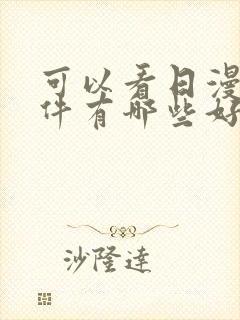 可以看日漫
件有哪些好
沙隆達